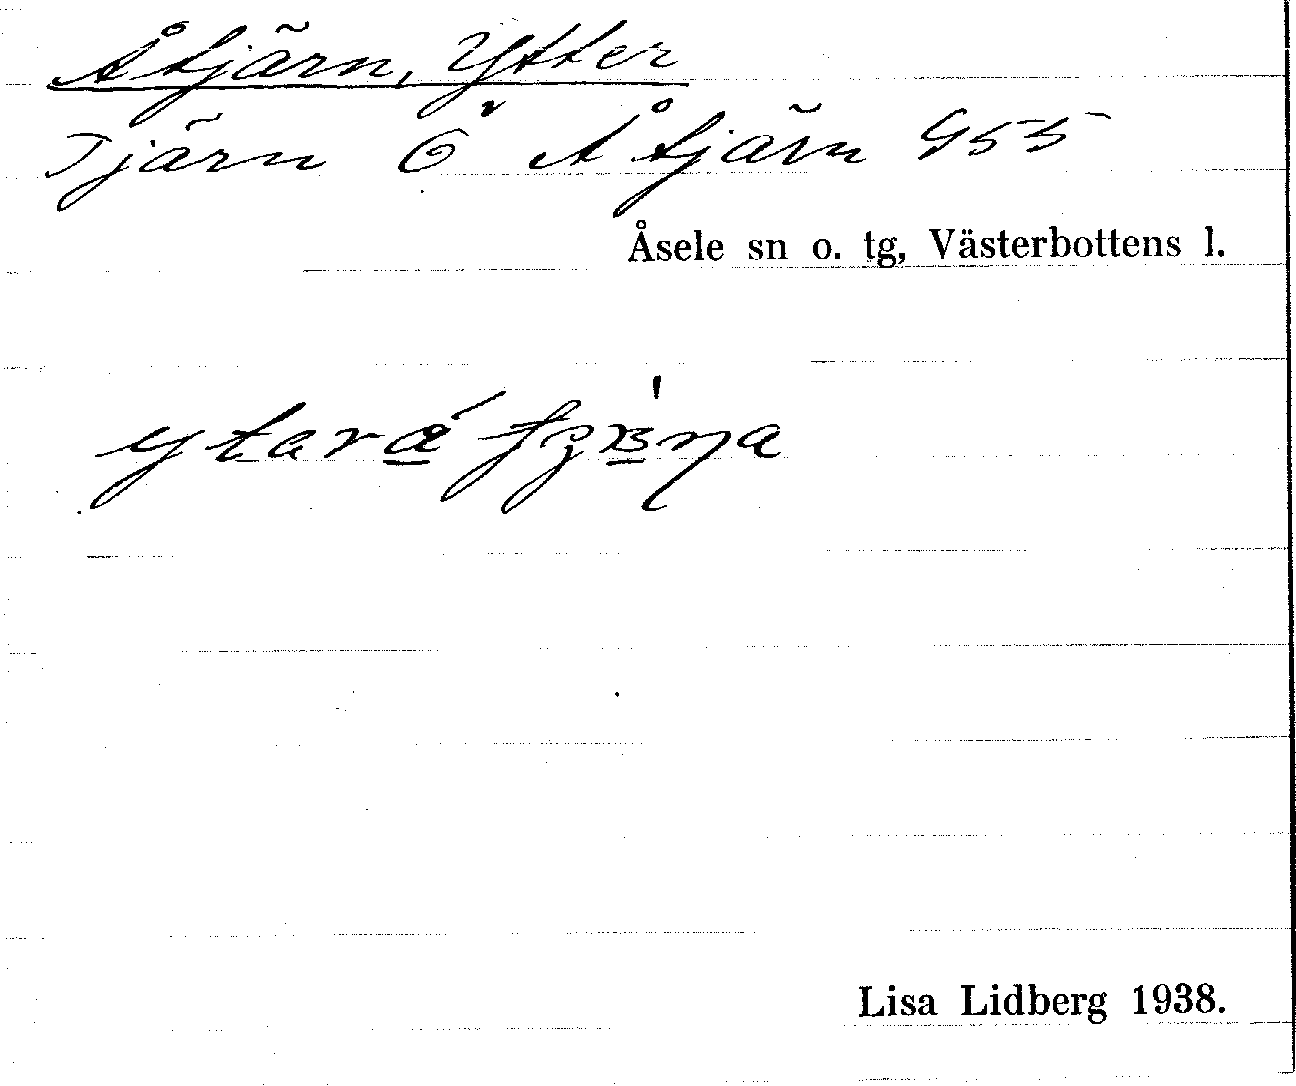 Åtjärn, Ytter
Tjärn Ö Åtjärn 455
Åsele sn o. tg, Västerbottens l.
Lisa Lidberg 1938.